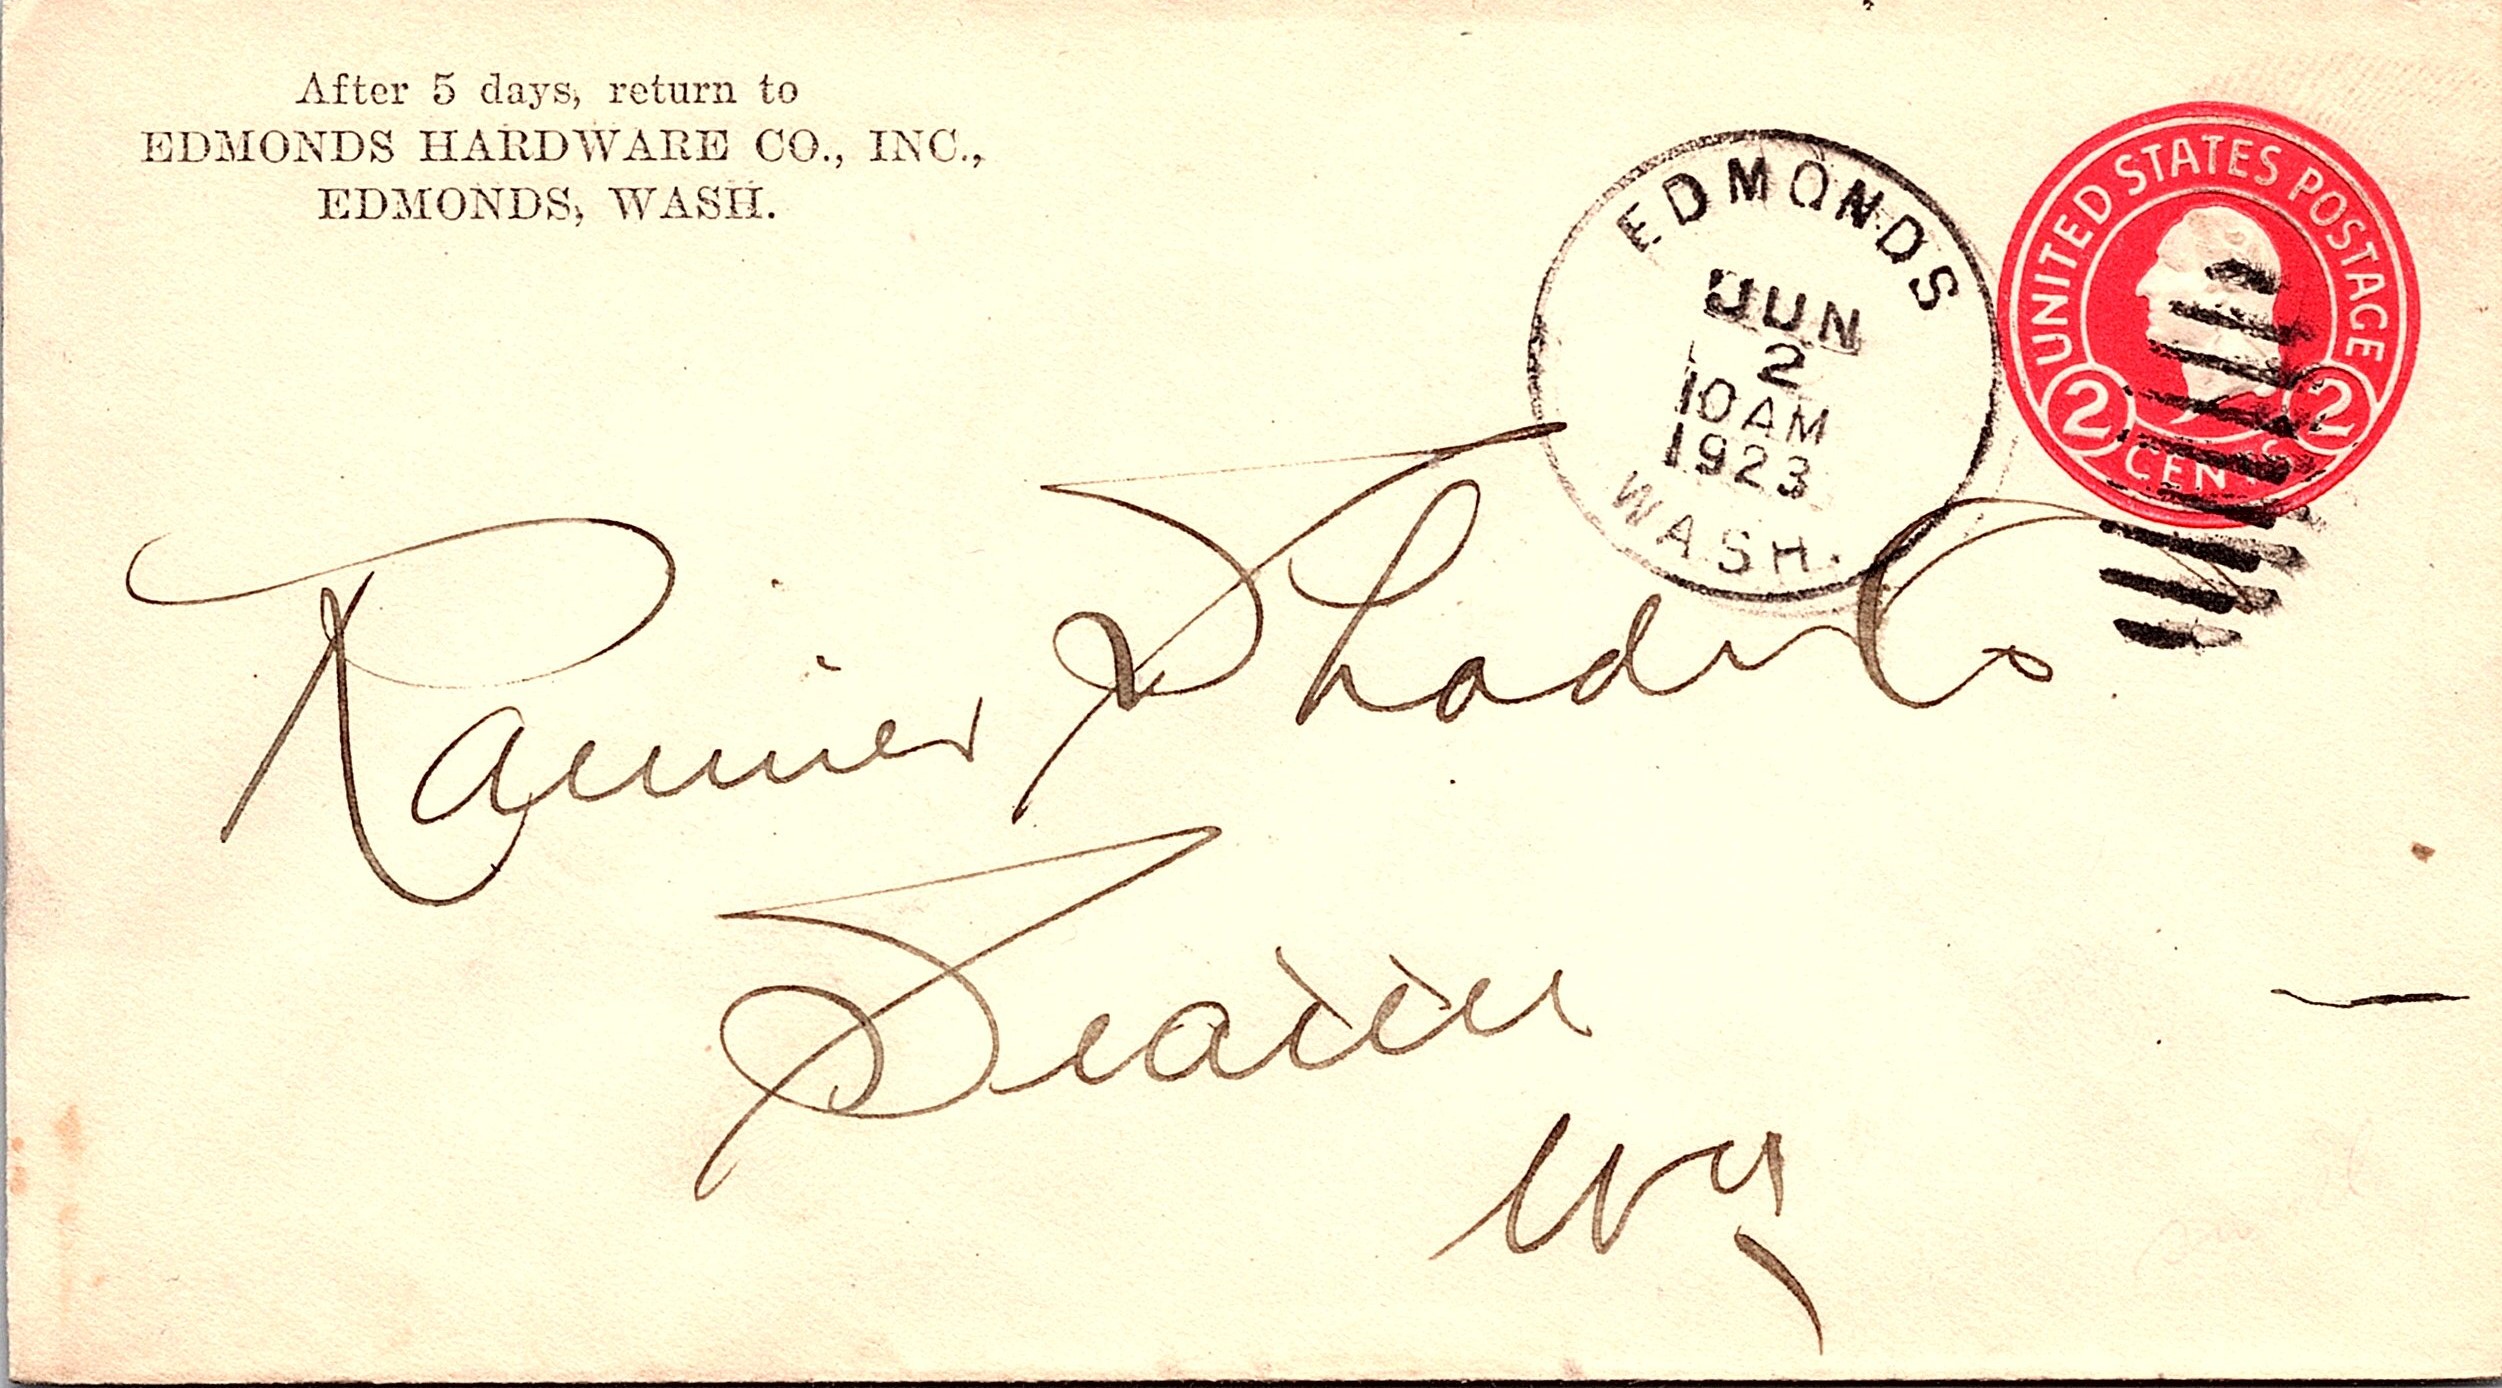 After 5 days, return to
EDMONDS HARDWARE CO., INC.,
EDMONDS, WASH.
EDMONDS
JUN
2
10 AM
1923
WASH.
UNITED STATES POSTAGE
2 CENTS 2
Rainier Shade Co
Seattle
Wn